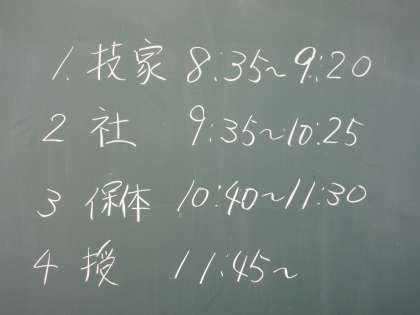 1. 技家 8:35~9:20
2 社 9:35~10:25
3 保体 10:40~11:30
4 授 11:45~